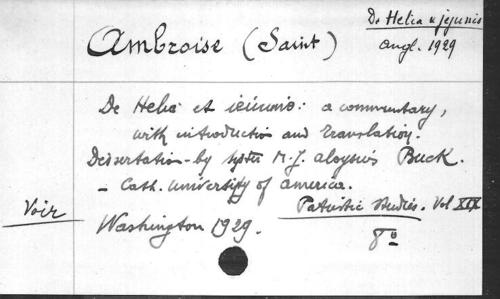 De Helia & jejunio
angl. 1929
Ambroise (Saint)
De Helia et ieiunio: a commentary,
with introduction and translation.
Dissertation by Syster M. J. Aloysius Buck.
- Cath. University of America.
Voir
Patristic Studies. Vol XIX
Washington 1929.
8º